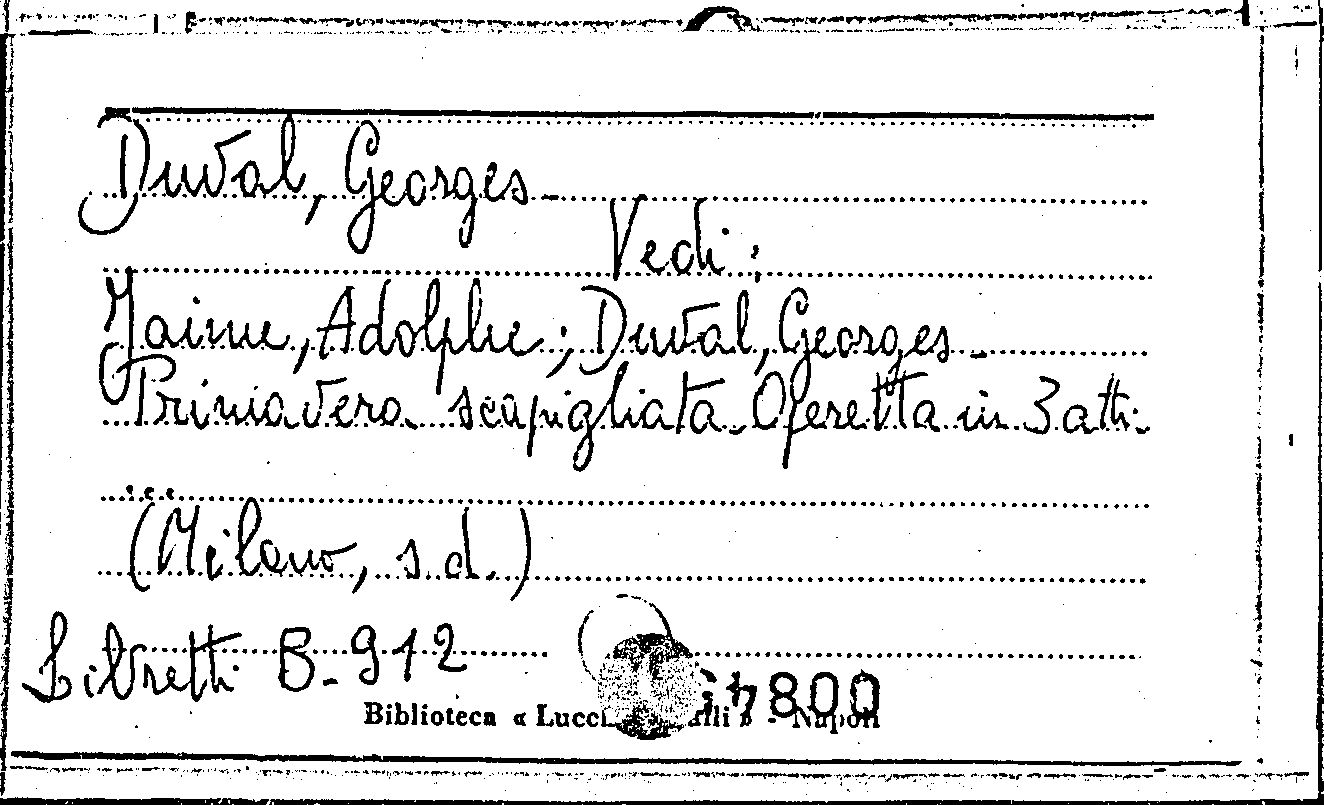 Duval, Georges -
Vedi :
Jaime, Adolphe ; Duval, Georges -
Primavera scapigliata - Operetta in 3 atti -
...
(Milano, s.d.)
Libretti B-912
0084
Biblioteca « » - Napoli